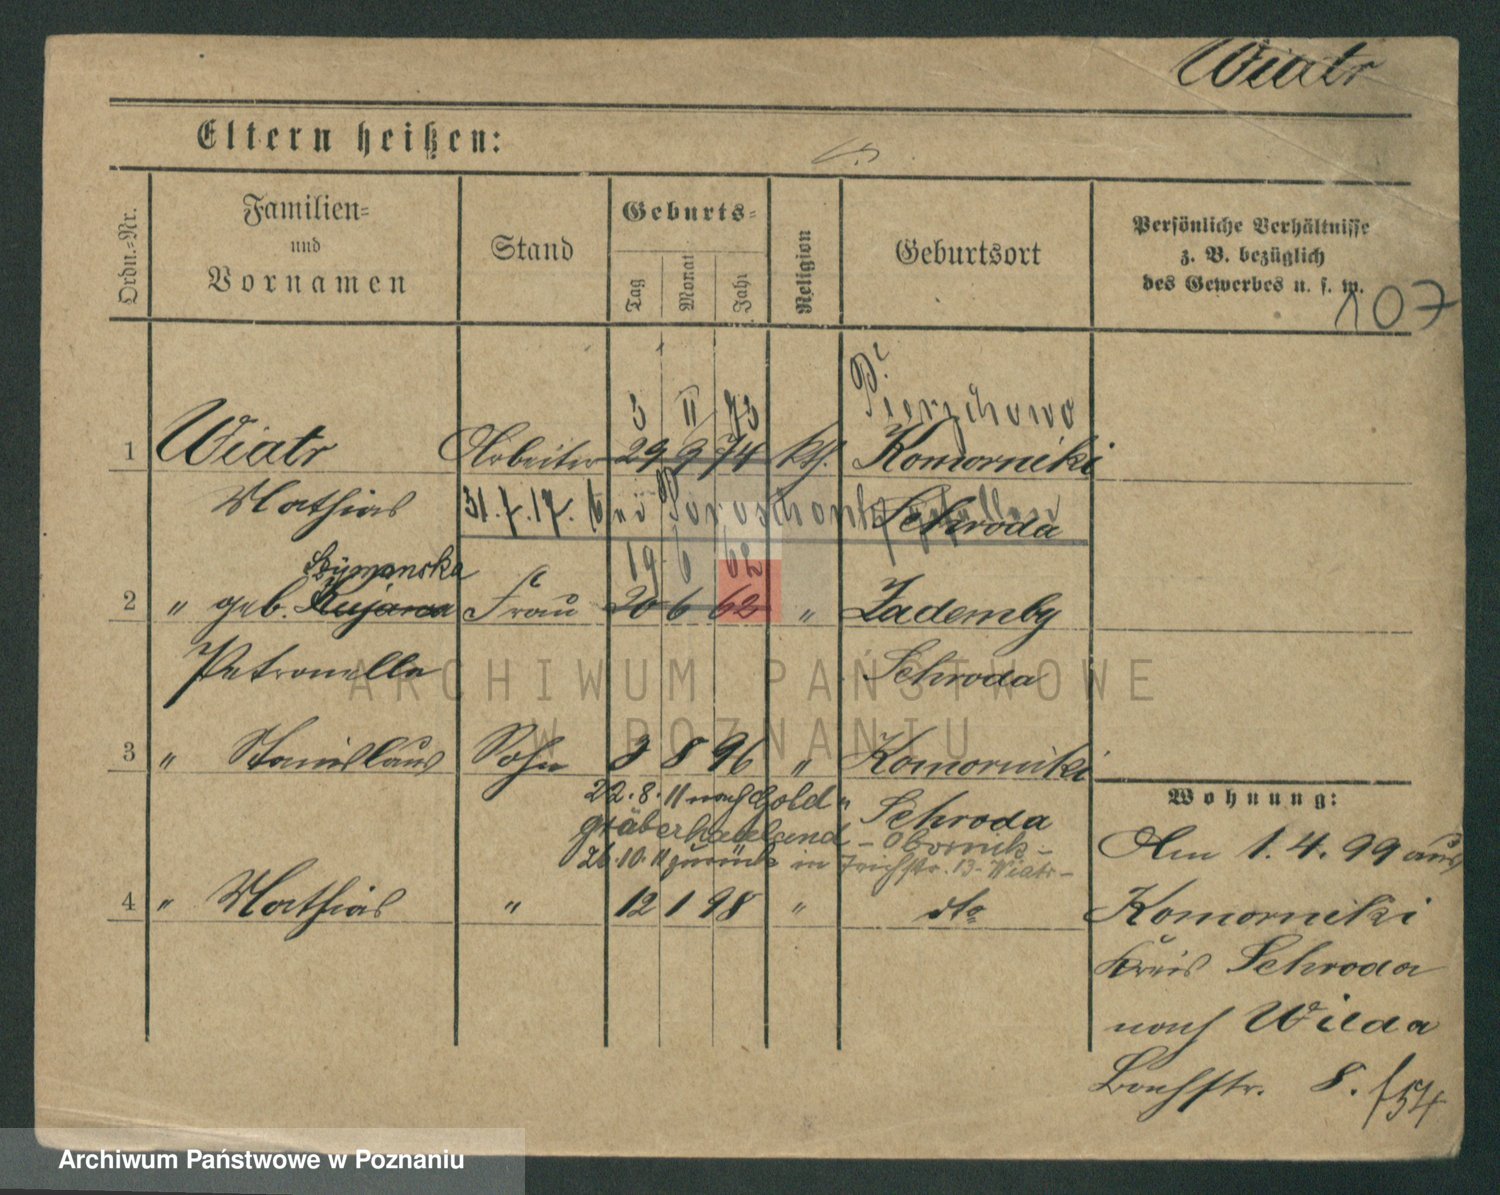 Wiatr
Eltern heißen:
Ordn.-Nr.
Familien-
und
Vornamen
Stand
Geburts-
Tag
Monat
Jahr
Religion
Geburtsort
Persönliche Verhältnisse
z. B. bezüglich
des Gewerbes u. s. w.
107
3 II 73 Pierzchowo
1 Wiatr Arbeiter 29 9 74 kth. Komorniki
Mathias 31. 7. 17. gefallen Schroda
Szymanska 19 6 62
2 " geb. Kujawa Frau 20 6 62 " Zademby
Petronella Schroda
3 " Stanislaus Sohn 3 8 96 " Komorniki
Wohnung:
22. 8. 11 nach Gold " Schroda
gräberhauland - Obornik -
26. 10. 11 zurück in 13 - Wiatr -
4 " Mathias " 12 1 98 " dto
Am 1. 4. 99 aus
Komorniki
Kreis Schroda
nach Wilda
Bachstr. 8. /54
ARCHIWUM PAŃSTWOWE
W POZNANIU
Archiwum Państwowe w Poznaniu